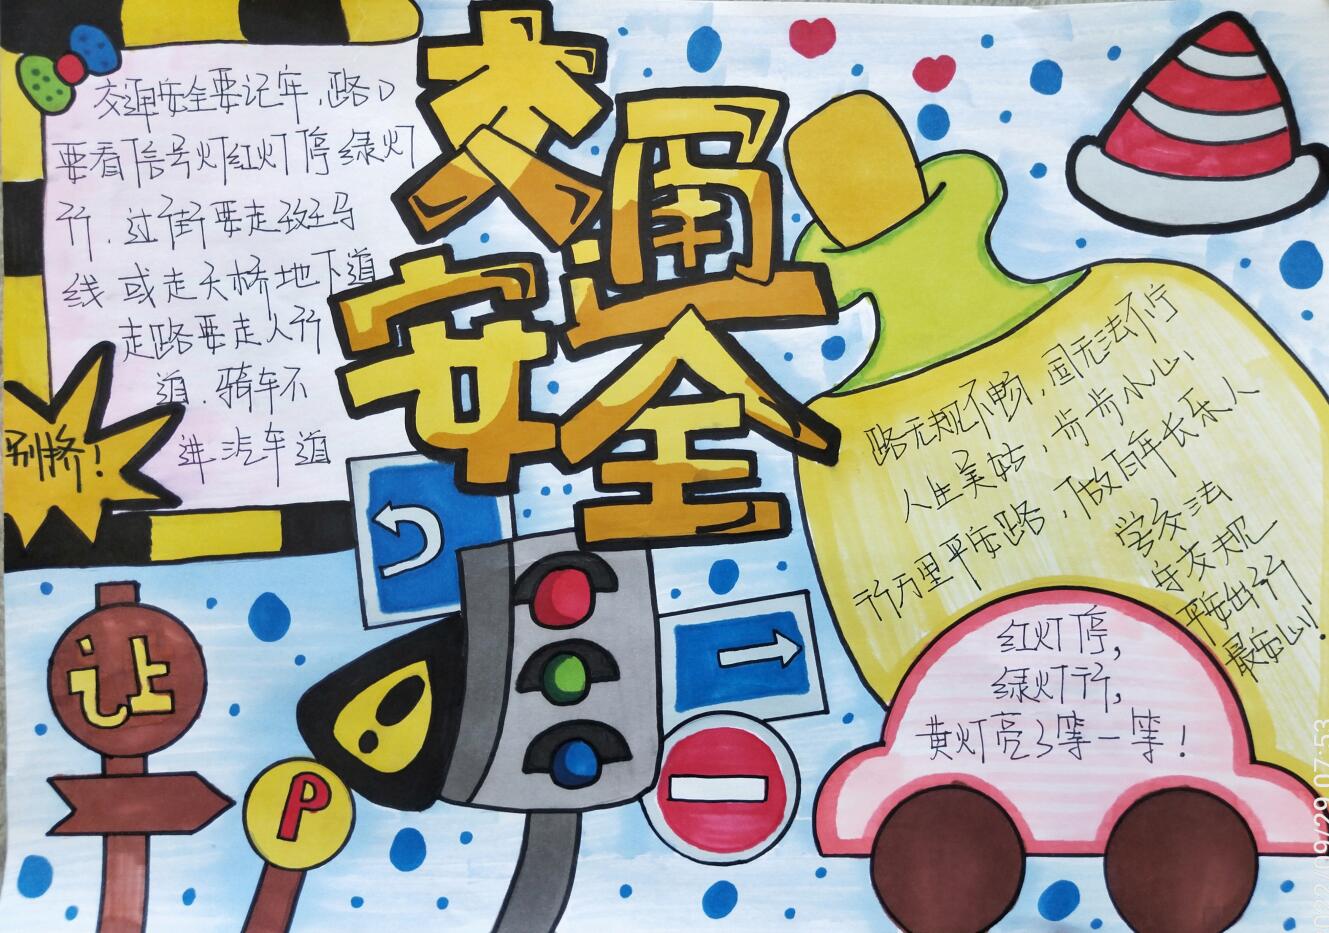 交通安全
交通安全要记牢.路口
要看信号灯红灯停绿灯
行.过街要走斑马
线或走天桥地下道
走路要走人行
道.骑车不
进汽车道
别挤!
路无规不畅,国无法不行
人生美好,步步小心,
行万里平安路,做百年长乐人
学交法
守交规
平安出行
最安心!
红灯停,
绿灯行,
黄灯亮了等一等!
让
P
2022/09/29 07:53